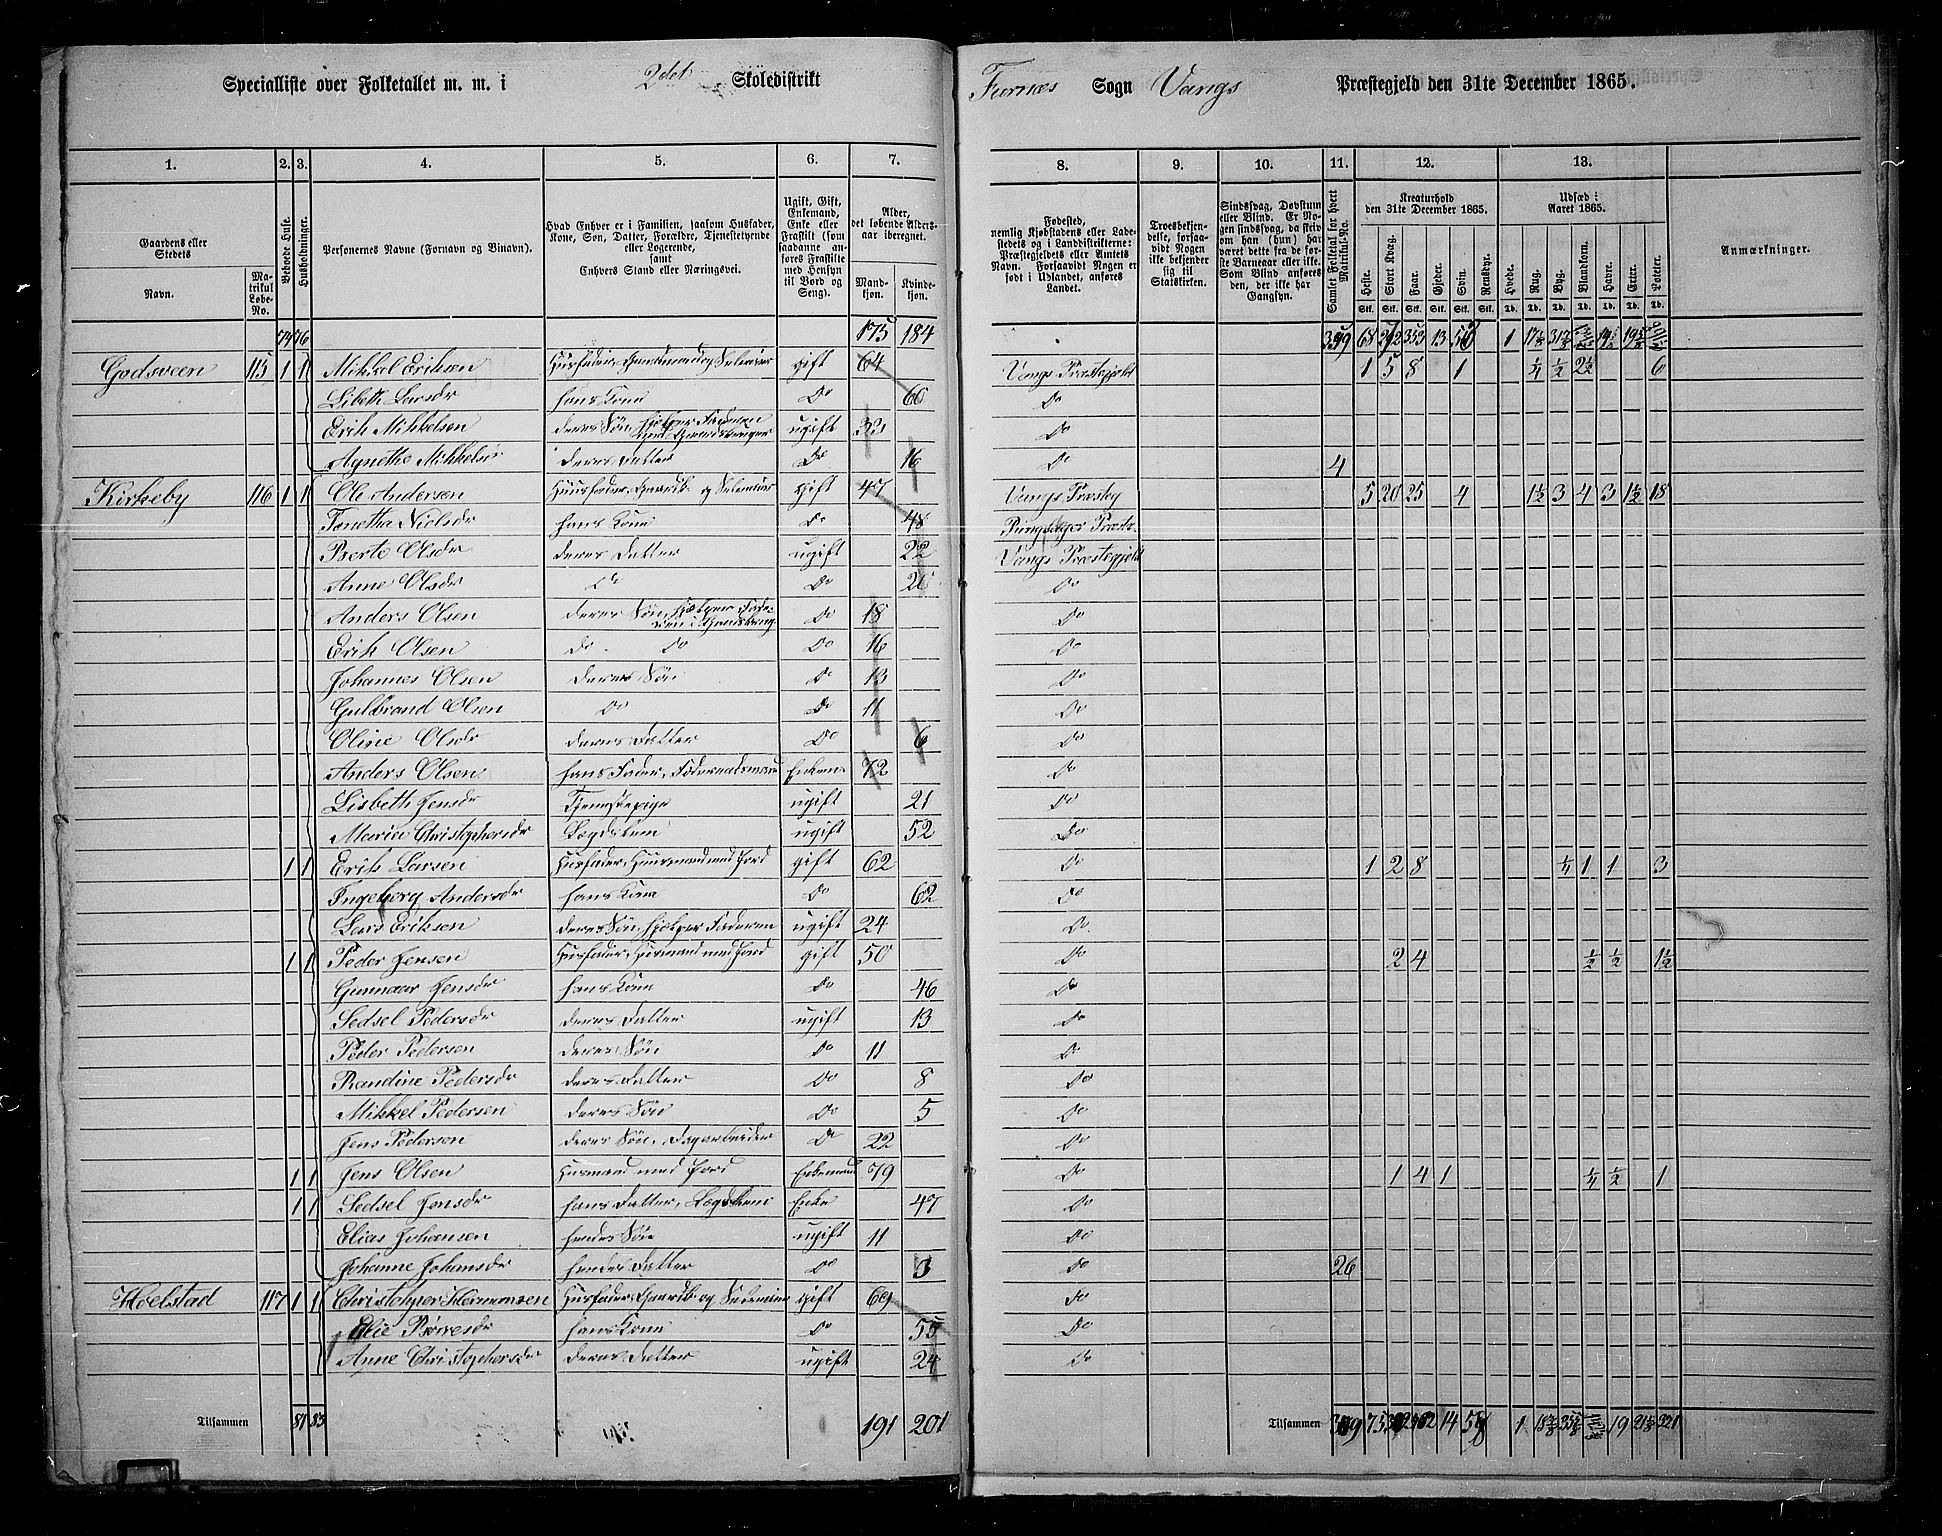 Specialliste over Folketallet m. m. i 2det Skoledistrikt Furnæs Sogn Vangs Præstegjeld den 31te December 1865.
1. 2. 3. 4. 5. 6. 7. 8. 9. 10. 11. 12. 13.
Gaardens eller Stedets
Navn.
Matrikul Løbe-No.
Beboede Huse.
Husholdninger.
Personernes Navne (Fornavn og Binavn).
Hvad Enhver er i Familien, saasom Husfader, Kone, Søn, Datter, Forældre, Tjenestetyende eller Logerende, samt Enhvers Stand eller Næringsvei.
Ugift, Gift, Enkemand, Enke eller Fraskilt (som saadanne anføres Fraskilte med Hensyn til Bord og Seng).
Alder, det løbende Aldersaar iberegnet.
Mandkjøn. Kvindekjøn.
Fødested, nemlig Kjøbstadens eller Ladestedets og i Landdistrikterne: Præstegjeldets eller Amtets Navn. Forsaavidt Nogen er født i Udlandet, anføres Landet.
Troesbekjendelse, forsaavidt Nogen ikke bekjender sig til Statskirken.
Sindssvag, Døvstum eller Blind. Er Nogen sindssvag, da skrives om han (hun) har været dette fra de første Barneaar eller ikke. Som Blind anføres den, der ikke har Gangsyn.
Samlet Folketal for hvert Matrikul-No.
Kreaturhold den 31te December 1865.
Heste. Stort Kvæg. Faar. Gjeder. Svin. Rensdyr.
Udsæd i Aaret 1865.
Hvede. Rug. Byg. Blandkorn. Havre. Erter. Poteter.
Stk. Stk. Stk. Stk. Stk. Stk. Td. Td. Td. Td. Td. Td. Td.
Anmærkninger.
74 76 175 184 359 68
Godsveen 115 1 1 Mikkel Eriksen Husfader, Gaardmand og Selveier gift 64 Vangs Præstegjeld 1 5 8 1 1/4 1/2 2 1/2 6
Lisbeth Larsdr hans Kone Do 60 Do
Erik Mikkelsen deres Søn, hjelper Faderen med Gaardsbruget ugift 32 Do
Agnethe Mikkelsdr deres Datter Do 16 Do 4
Kirkeby 116 1 1 Ole Andersen Huusfader, Gaardb. og Selveier gift 47 Vangs Præstegj 5 20 25 4 1 1/2 3 4 3 1 1/2 18
Tonetha Nielsdr hans Kone Do 48 Ringsager Præste
Berte Olsdr deres Datter ugift 22 Vangs Præstegjeld
Anne Olsdr do Do 20 Do
Anders Olsen deres Søn, hjelper Faderen i Gaardsbrug Do 18 Do
Erik Olsen do do Do 16 Do
Johannes Olsen deres Søn Do 13 Do
Gulbrand Olsen Do Do 11 Do
Oline Olsdr deres Datter Do 6 Do
Anders Olsen hans Fader, Føderaadsmand Enkem 72 Do
Lisbeth Jensdr Tjenestepige ugift 21 Do
Maria Christophersdr Lægdslem ugift 52 Do
1 1 Erik Larsen Husfader, Huusmand med Jord gift 62 Do 1 2 8 1/4 1 1 3
Ingeborg Andersdr hans Kone Do 62 Do
Lars Eriksen deres Søn, hjelper Faderen ugift 24 Do
1 1 Peder Jensen Husfader, Husmand med Jord gift 50 Do 2 4 1/2 1/2 1 1/2
Gunnaar Jensdr hans Kone Do 46 Do
Sedsel Pedersdr deres Datter ugift 13 Do
Peder Pedersen deres Søn Do 11 Do
Randine Pedersdr deres Datter Do 8 Do
Mikkel Pedersen deres Søn Do 5 Do
Jens Pedersen deres Søn, Dagarbeider Do 22 Do
1 1 Jens Olsen Husmand med Jord Enkemand 79 Do 1 4 1 1/4 1/2 1
1 1 Sedsel Jensdr hans Datter, Lægdslem Enke 47 Do
Elias Johansen hendes Søn ugift 11 Do
Johanne Johansdr hendes Datter Do 3 Do 26
Hoelstad 117 1 1 Christopher Hermansen Husfader, Gaardb. og Selveier gift 69 Do
Elie Børresdr hans Kone Do 55 Do
Anne Christophersdr deres Datter ugift 24 Do
Tilsammen 81 83 191 201 Tilsammen 75 14 1 19 321